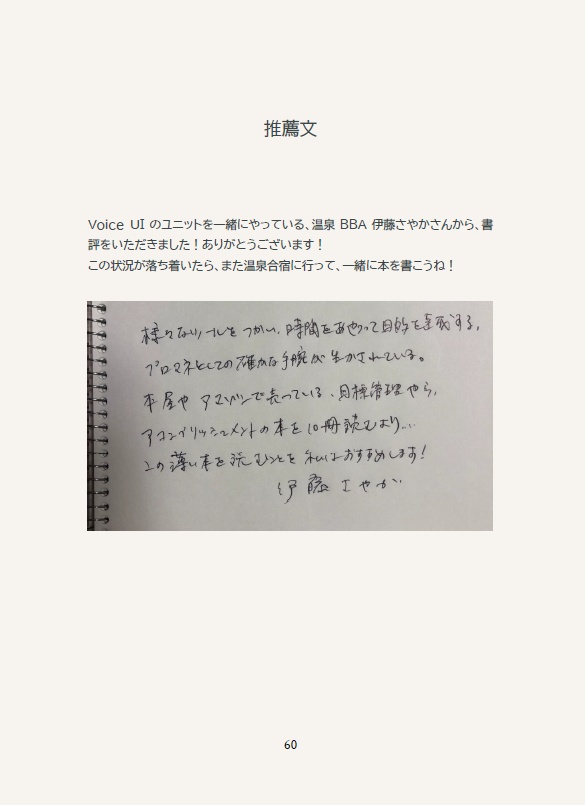 推薦文
Voice UI のユニットを一緒にやっている、温泉 BBA 伊藤さやかさんから、書
評をいただきました！ありがとうございます！
この状況が落ち着いたら、また温泉合宿に行って、一緒に本を書こうね！
様々なツールをつかい、時間をあやつって目的を達成する。
プロマネとしての確かな手腕が生かされている。
本屋や アマゾンで売っている、目標管理やら、
アコンプリッシュメントの本を10冊読むより...
この薄い本を読むことを 私はおすすめします！
伊藤 さやか
60